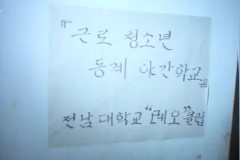 『근로 청소년
동계 야간학교』
전남대학교 "레오"클럽